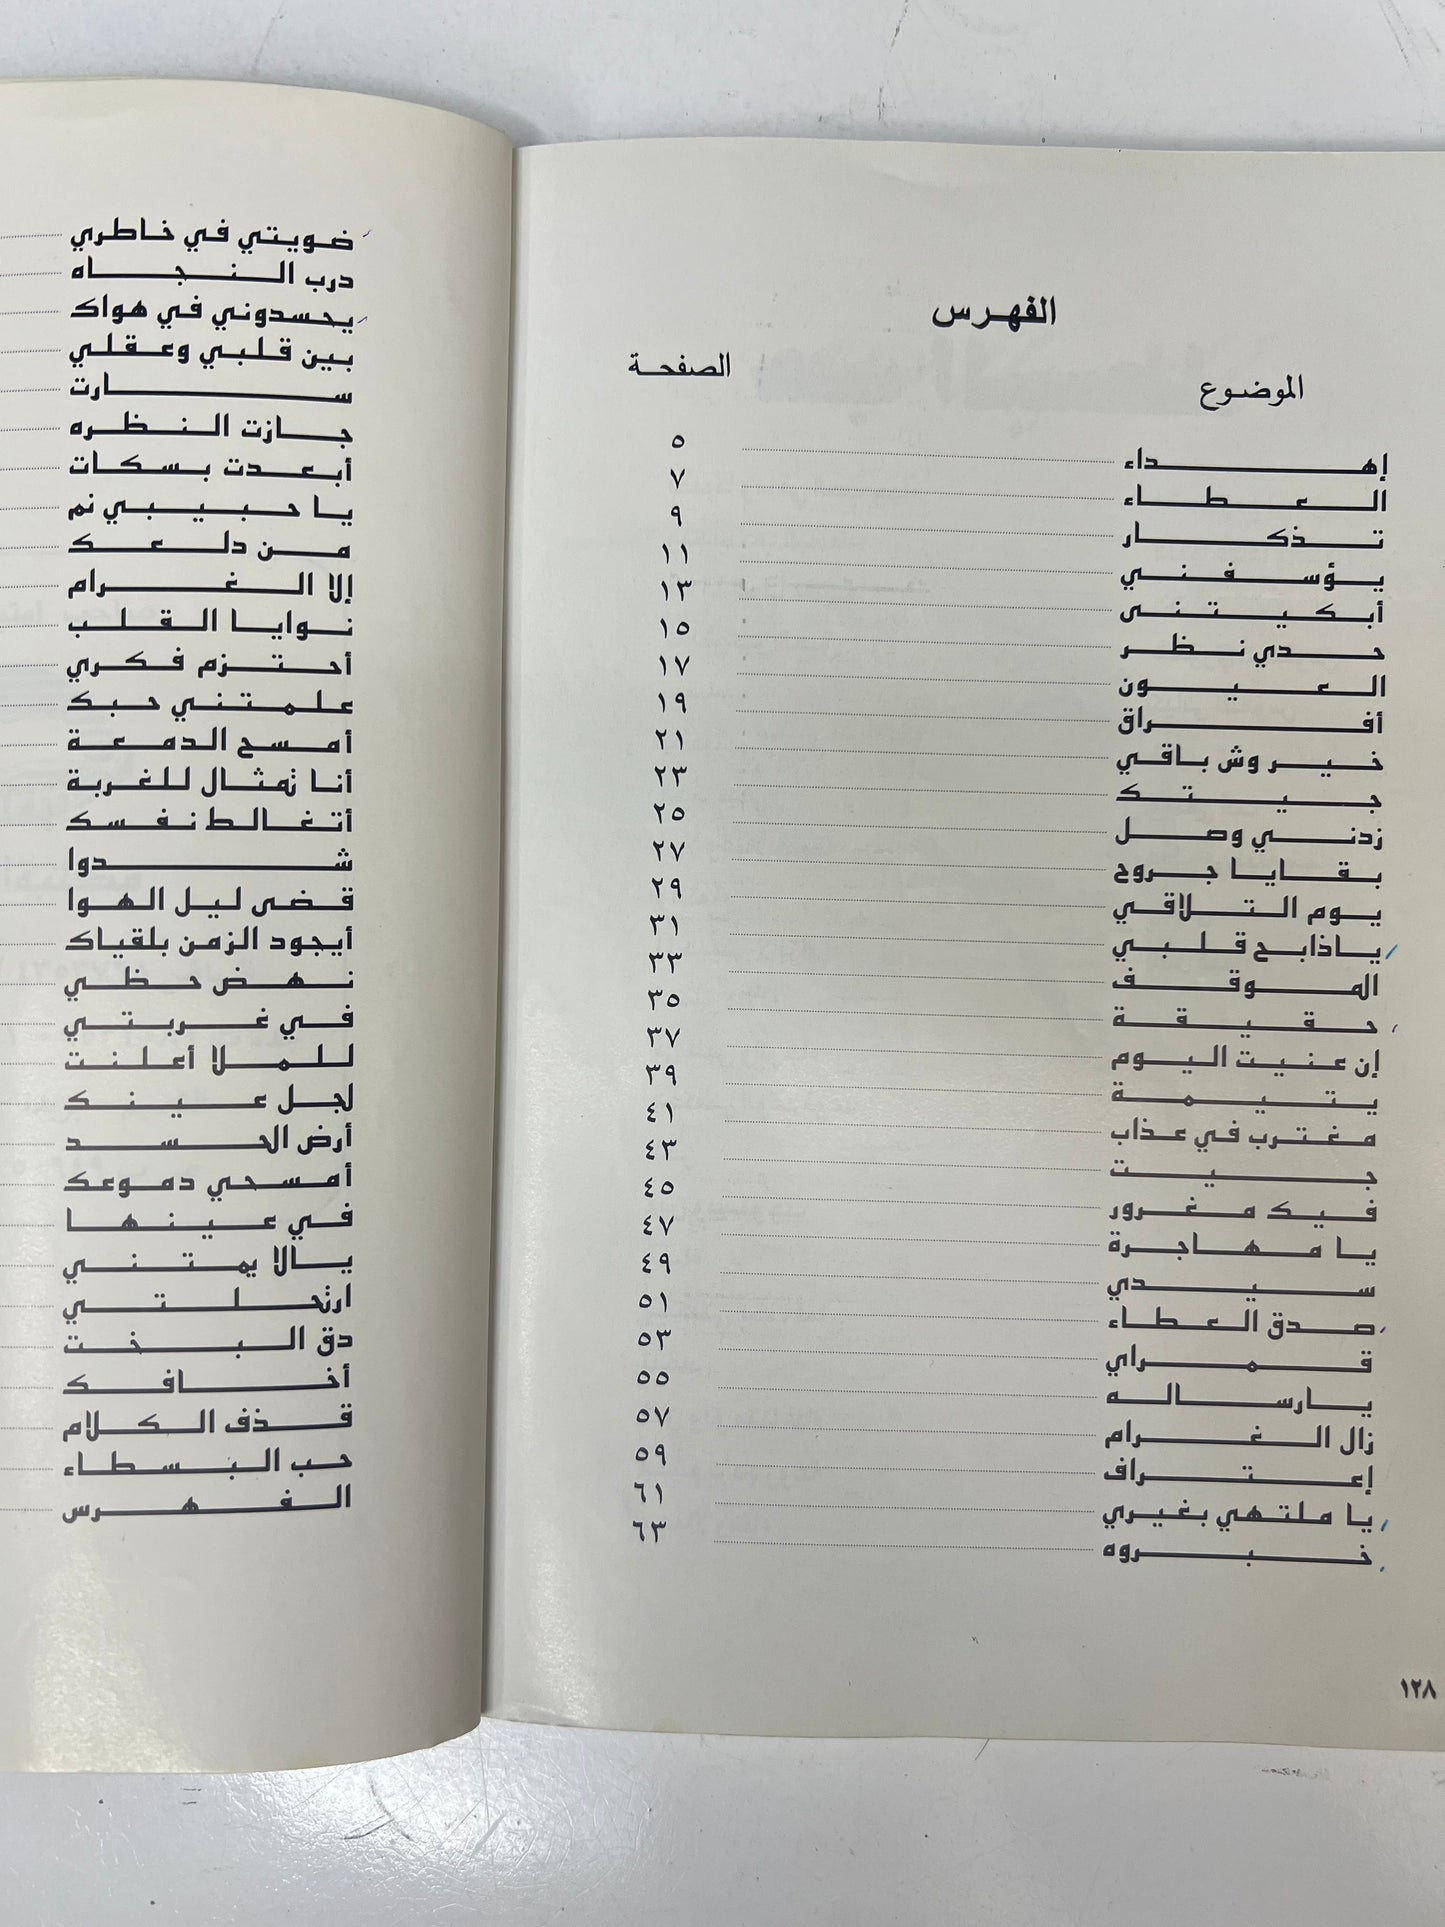 الفهرس
الموضوع الصفحة
إهداء ٥
العطاء ٧
تذكار ٩
يؤسفني ١١
أبكيتنى ١٣
حدي نظر ١٥
العيون ١٧
أفراق ١٩
خير وش باقي ٢١
جيتك ٢٣
زدني وصل ٢٥
بقايا جروح ٢٧
يوم التلاقي ٢٩
ياذابح قلبي ٣١
الموقف ٣٣
حقيقة ٣٥
إن عنيت اليوم ٣٧
يتيمة ٣٩
مغترب في عذاب ٤١
جيت ٤٣
فيك مغرور ٤٥
يا مهاجرة ٤٧
سيدي ٤٩
صدق العطاء ٥١
قمراي ٥٣
يارساله ٥٥
زال الغرام ٥٧
إعتراف ٥٩
يا ملتهي بغيري ٦١
خبروه ٦٣
١٢٨
ضويتي في خاطري
درب النجاه
يحسدوني في هواك
بين قلبي وعقلي
سارت
جازت النظره
أبعدت بسكات
يا حبيبي نم
من دلعك
إلا الغرام
نوايا القلب
أحتزم فكري
علمتني حبك
أمسح الدمعة
أنا تمثال للغربة
أتغالط نفسك
شدوا
قضى ليل الهوا
أيجود الزمن بلقياك
نهض حظي
في غربتي
للملا أعلنت
لجل عينك
أرض الحسد
أمسحي دموعك
في عينها
يالا يمتني
ارتحلتي
دق البخت
أخافك
قذف الكلام
حب البسطاء
الفهرس